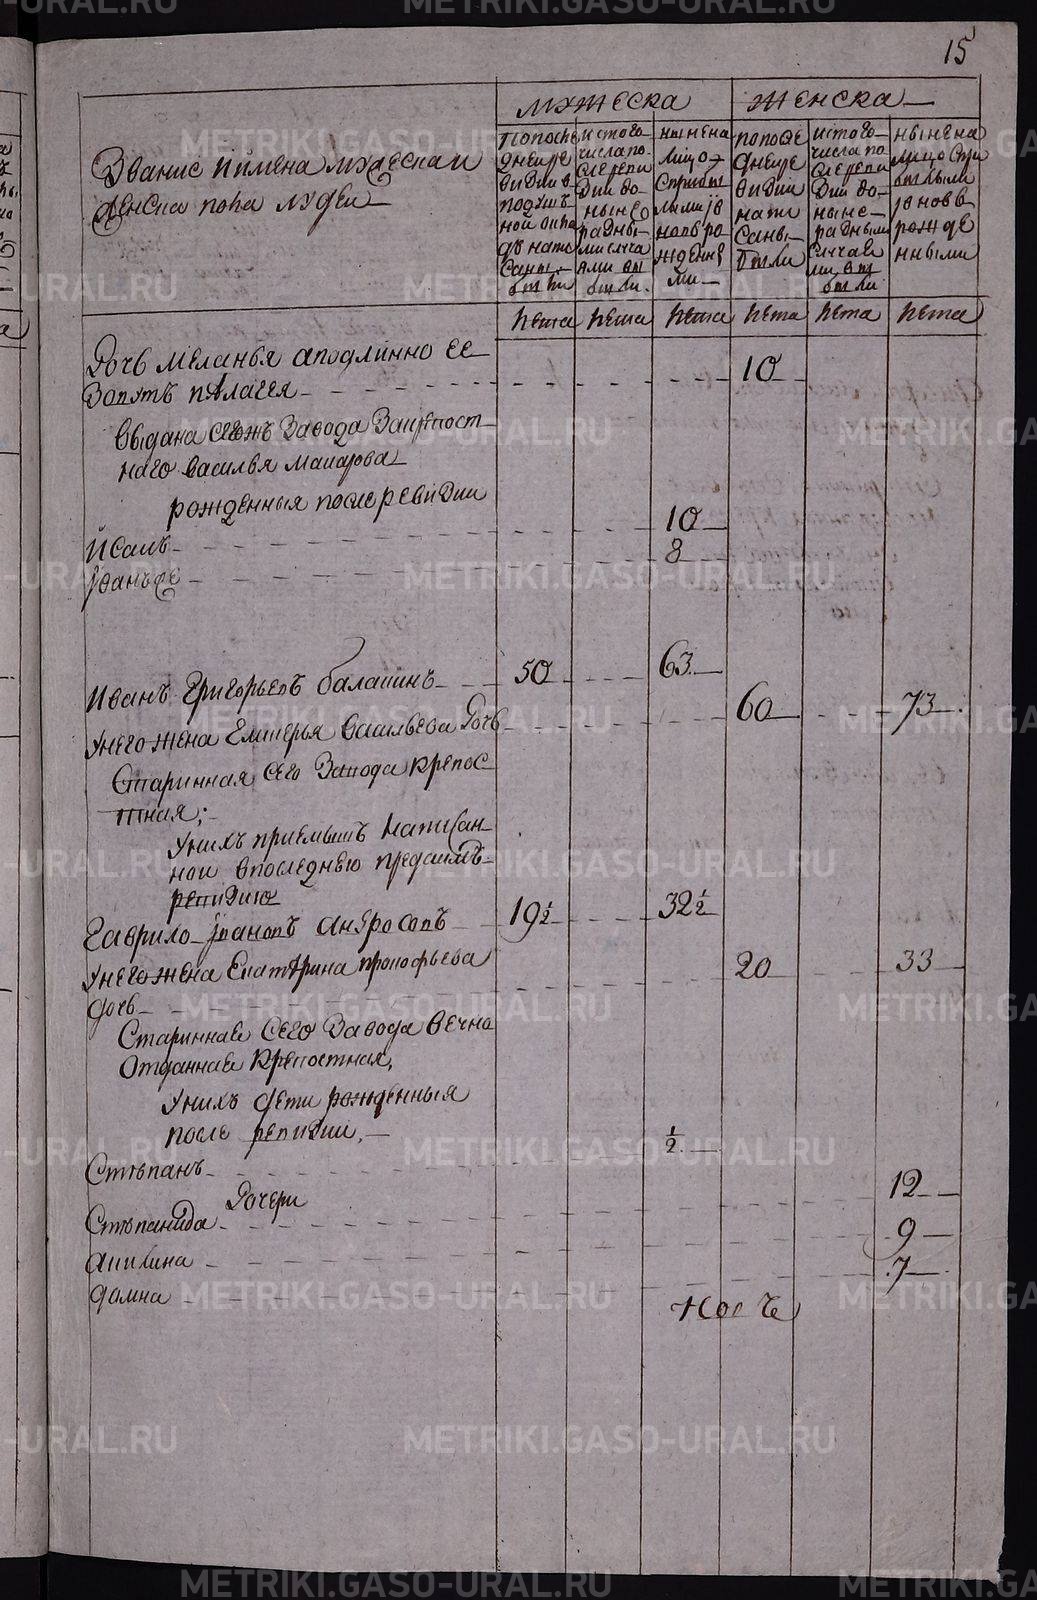 15
мужеска
женска
Звание и имена мужеска и
женска пола людей
По после
дней ре
визии в
подуш
ной окла
де напи
саны
были
ис того
числа по
сле реви
зии до
ныне
разны
ми случа
ями вы
были.
ныне на
лицо
с прибы
лыми и
новоро
жденны
ми
по после
дней ре
визии
напи
саны
были
ис того
числа по
сле реви
зии до
ныне
разными
случая
ми вы
были
ныне на
лицо с при
былыми
и новь
рожде
нными
лета лета лета лета лета лета
Дочь Меланья а подлинно ее
зовутъ Палагея 10
выдана сегожъ завода за крепост
наго василья макарова
рожденныя после ревизии
Исакъ 10
Иванъ же 8
Иванъ Григорьевъ балашинъ 50 63
у него жена Гликерья васильева дочь 60 73
Старинная сего завода крепос
тная;
у нихъ приемышъ написан
ной впоследнею пред симъ
ревизию
Гаврило Ивановъ Амбросовъ 19½ 32½
у него жена Екатерина прокофьева 20 33
дочь
Стариннае сего завода вечно
отданнае крепостная,
у нихъ дети рожденныя
после ревизии,
Степанъ ½
Дочери
Степанида 12
акилина 9
домна 7
METRIKI.GASO-URAL.RU